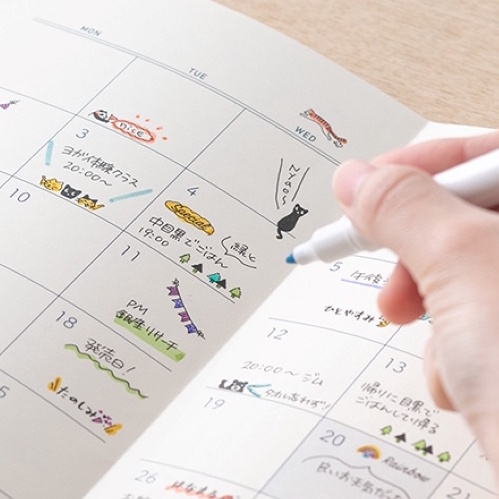 MON
TUE
WED
nice
3
ヨガ体験クラス
20:00〜
Nyao〜
4
Special
中目黒でごはん
19:00
緑と
10
11
PM
銀座リサーチ
18
発売日！
たのしみ
5
午後
ひとやすみ
12
20:00〜 ジム
13
帰りに目黒で
ごはんして帰る
19
20
Rainbow
良いお天気でした
26